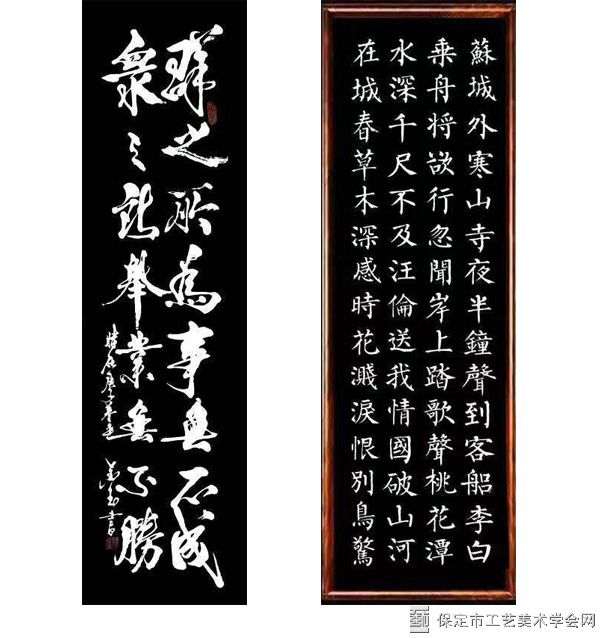 群之所為事無不成
衆之舉業無不勝
蘇城外寒山寺夜半鐘聲到客船李白
乘舟将欲行忽聞岸上踏歌聲桃花潭
水深千尺不及汪倫送我情國破山河
在城春草木深感時花濺淚恨別鳥驚
保定市工艺美术学会网